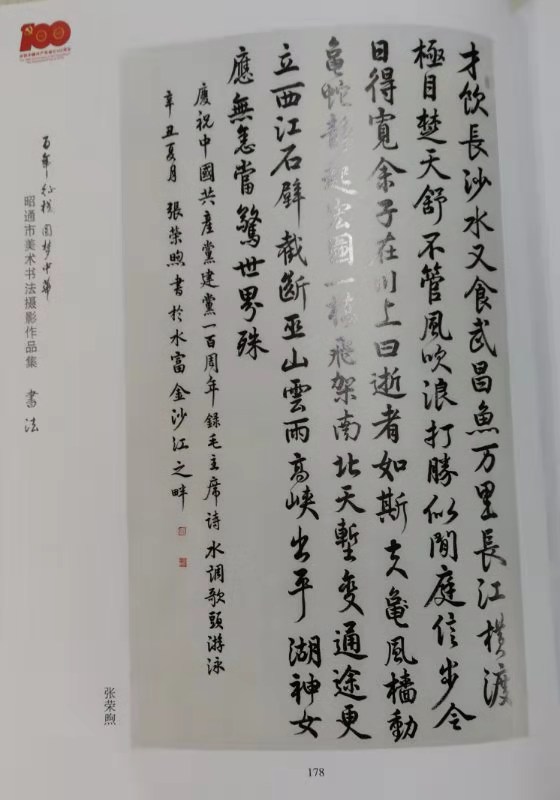 100
才飲長沙水又食武昌魚万里長江橫渡
極目楚天舒不管風吹浪打勝似閒庭信步今
日得寬余子在川上曰逝者如斯夫龜風檣動
龜蛇靜起宏圖一橋飛架南北天塹變通途更
立西江石壁截斷巫山雲雨高峽出平湖神女
應無恙當驚世界殊
慶祝中國共產黨建黨一百周年錄毛主席詩水調歌頭游泳
辛丑夏月張榮煦書於水富金沙江之畔
百年征程 圆梦中华
昭通市美术书法摄影作品集 书法
张荣煦
178